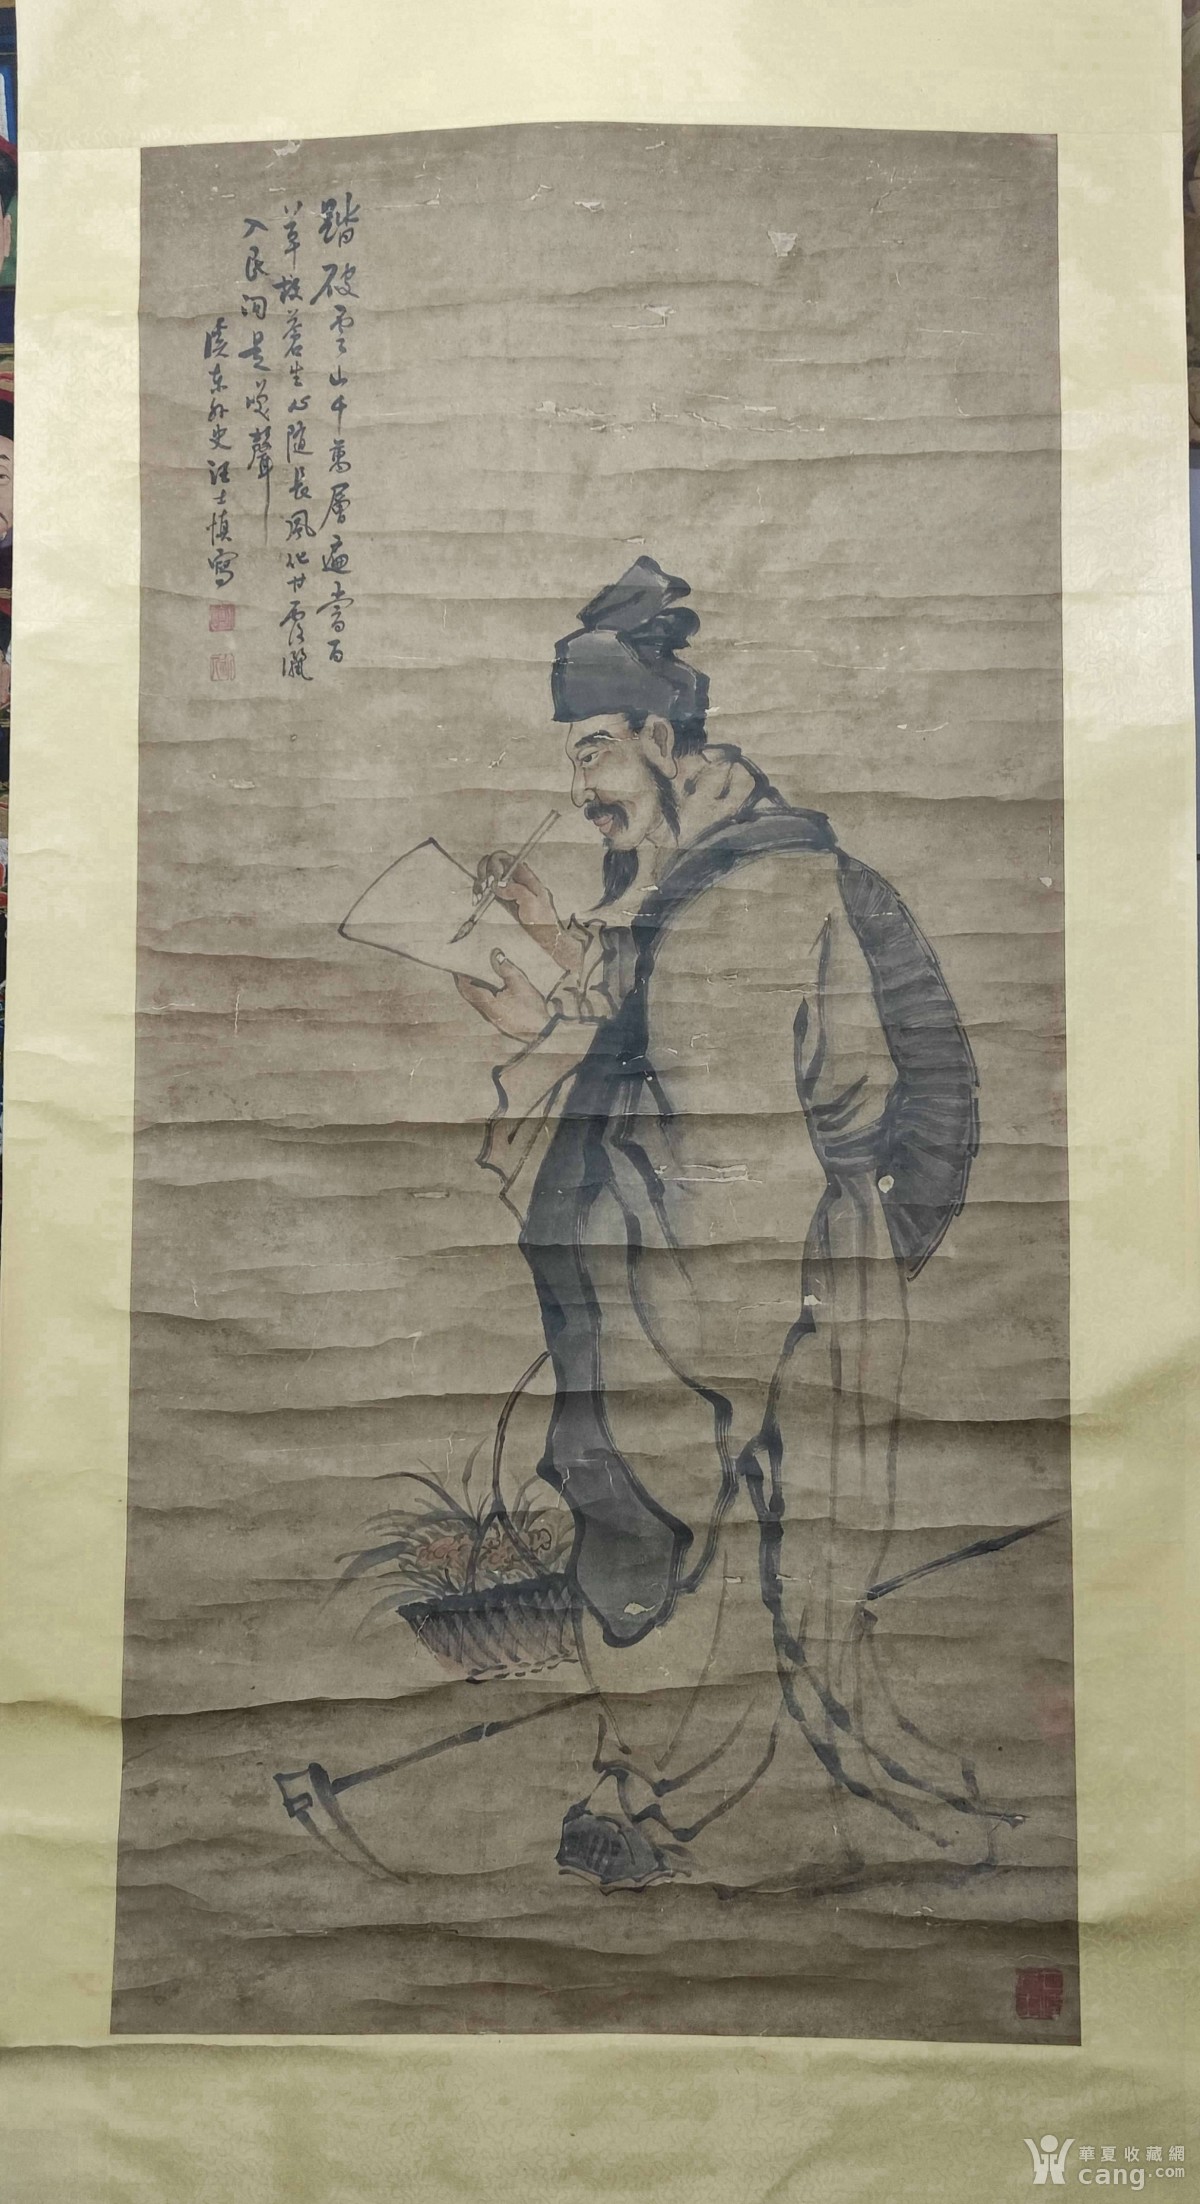 踏破雲山千萬層遍嘗百
草救蒼生心隨長風化甘霖灑
入民間是笑聲
溪東外史汪士慎寫
華夏收藏網
cang.com